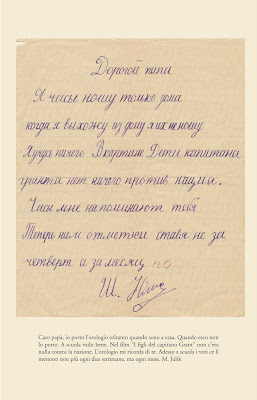 Дорогой папа
Я часы ношу только дома
когда я выхожу из дому я их не ношу
Я учусь ничего В картине Дети капитана
гранта нет ничего против нацыи.
Часы мне напоминают тебя
Теперь нам отметки ставят не за
четверт а за месяц по
Caro papà, io porto l'orologio soltanto quando sono a casa. Quando esco non
lo porto. A scuola vado bene. Nel film "I figli del capitano Grant" non c'era
nulla contro la nazione. L'orologio mi ricorda di te. Adesso a scuola i voti ce li
mettono non più ogni due settimane, ma ogni mese. M. Julik